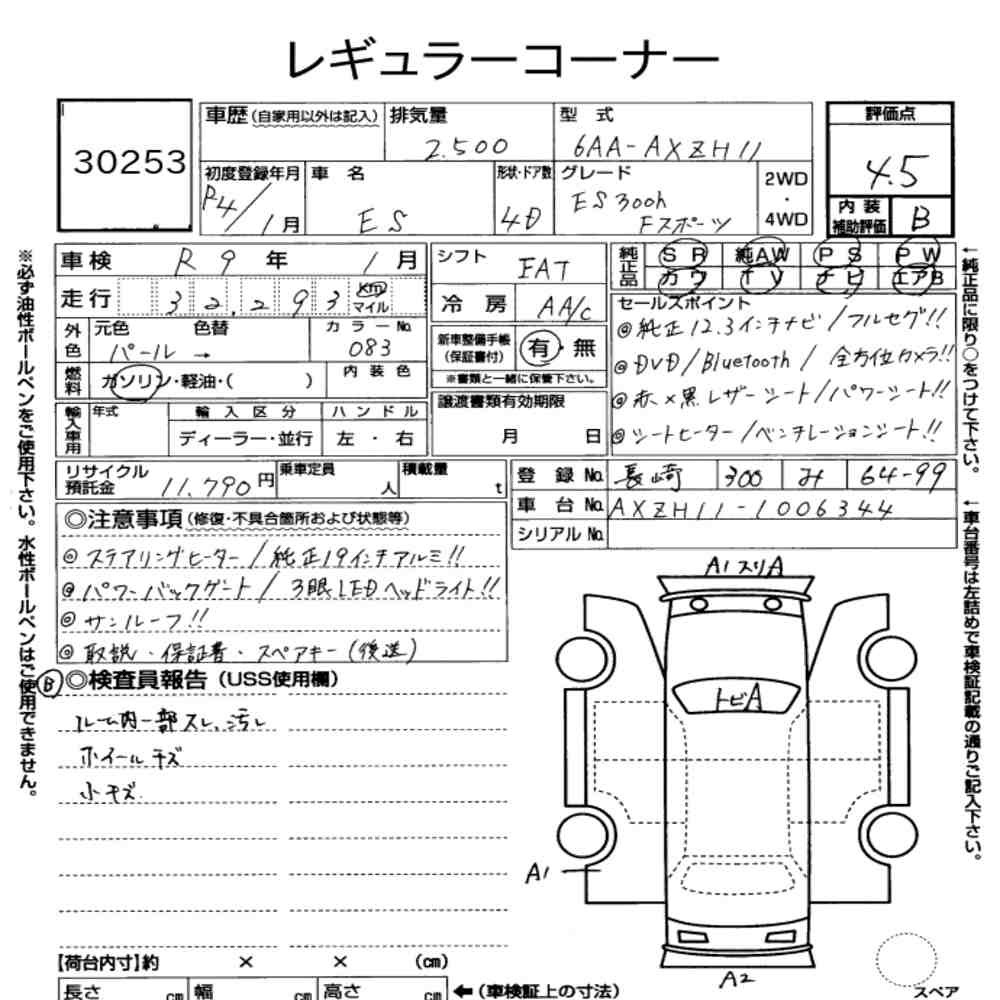 レギュラーコーナー
30253
車歴(自家用以外は記入) 排気量 2.500 型式 6AA-AXZH11
評価点 4.5
初度登録年月 R4/1月 車名 ES 形状・ドア数 4D グレード ES300h Fスポーツ 2WD・4WD
内装補助評価 B
車検 R9年 1月 シフト FAT 純正品 SR 純AW PS PW
カワ TV ナビ エアB
走行 32,293 km マイル 冷房 AA/c
セールスポイント
外色 元色 色替 カラーNo.
パール → 083
新車整備手帳(保証書付) 有・無
※書類と一緒に保管下さい。
◎純正12.3インチナビ/フルセグ!!
◎DVD/Bluetooth/全方位カメラ!!
◎赤×黒レザーシート/パワーシート!!
◎シートヒーター/ベンチレーションシート!!
燃料 ガソリン・軽油・( ) 内装色
譲渡書類有効期限 月 日
輸入車用 年式 輸入区分 ハンドル
ディーラー・並行 左・右
リサイクル預託金 11.790円 乗車定員 人 積載量 t
登録No. 長崎 300 み 64-99
車台No. AXZH11-1006344
シリアルNo.
◎注意事項(修復・不具合箇所および状態等)
◎ステアリングヒーター/純正19インチアルミ!!
◎パワーバックゲート/3眼LEDヘッドライト!!
◎サンルーフ!!
◎取説・保証書・スペアキー(後送)
B ◎検査員報告(USS使用欄)
ルーム内一部スレ、汚レ
ホイールキズ
小キズ
A1スリA
トビA
A1
A2
スペア
【荷台内寸】約 × × (cm)
長さ cm 幅 cm 高さ cm ←(車検証上の寸法)
※必ず油性ボールペンをご使用下さい。水性ボールペンはご使用できません。
←純正品に限り○をつけて下さい。
←車台番号は左詰めで車検証記載の通りご記入下さい。